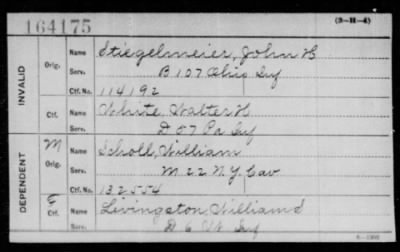 164175
(3-H-4)
INVALID
Orig. Name Stiegelmeier, John H
Serv. B 107 Ohio Inf
Ctf. No. 114192
Ctf. Name White, Walter H
Serv. D 57 Pa Inf
DEPENDENT
M
Orig. Name Scholl, William
Serv. M 22 N.Y. Cav
Ctf. No. 132554
Ctf. Name Livingston, William S
Serv. D 6 Vt Inf